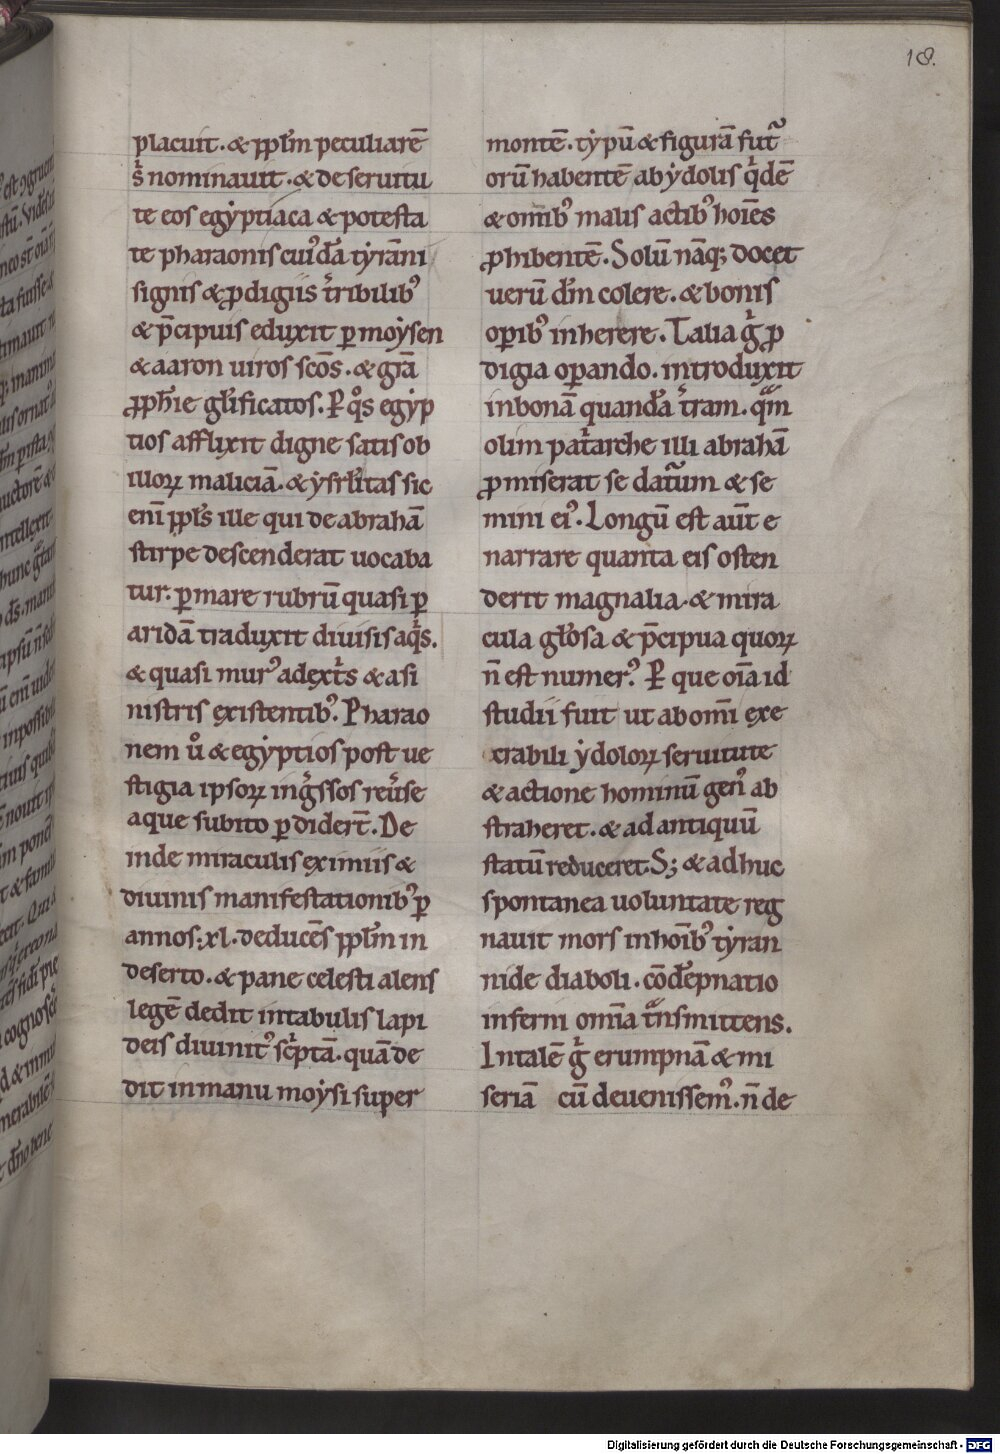 18.
placuit. & pp̄lm peculiarē
s̄ nominauit. & de seruitu
te eos egẏptiaca & potesta
te pharaonis cuiꝰdā tẏrāni
signis & ꝓdigiis tͥribilibꝰ
& p̄cipuis eduxit ꝑ moẏsen
& aaron uiros scōs. & grā
ꝓph̄ie gl̄ificatos. Ꝑ qͦs egẏp
tios afflixit digne satis ob
illoꝝ maliciā. & ẏsrl̄itas sic
enī ppl̄s ille qui de abrahā
stirpe descenderat uocaba
tur. ꝑ mare rubrū quasi ꝑ
aridā traduxit diuisis aqͥs.
& quasi murꝰ a dext̄s & a si
nistris existentibꝰ. Pharao
nem uͦ & egẏptios post ue
stigia ipsoꝝ inḡssos reūse
aque subito ꝑdidert̄. De
inde miraculis eximiis &
diuinis manifestationibꝰ ꝑ
annos .xl. deducēs pp̄lm in
deserto. & pane celesti alens
legē dedit in tabulis lapi
deis diuinitꝰ sc̄ptā. quā de
dit in manu moẏsi super
montē. tẏpū & figurā futᷓ
orū habentē ab ẏdolis qͥdē
& om̄ibꝰ malis actibꝰ hoīes
ꝓhibentē. Solū nāq; docet
uerū dm̄ colere. & bonis
oꝑibꝰ inherere. Talia gͥ ꝓ
digia oꝑando. introduxit
in bonā quandā tͥram. qᷓm
olim patͥarche illi abrahā
ꝓmiserat se datᷓum & se
mini eiꝰ. Longū est aūt e
narrare quanta eis osten
derit magnalia. & mira
cula gl̄osa & p̄cipua quoꝝ
n̄ est numerꝰ. Ꝑ que oīa id
studii fuit ut ab omī exe
crabili ẏdoloꝝ seruitute
& actione hominū genꝰ ab
straheret. & ad antiquū
statū reduceret. S; & adhuc
spontanea uoluntate reg
nauit mors in hoībꝰ tẏran
nide diaboli. cōdēpnatio
inferni omīa tᷓnsmittens.
In talē gͥ erumpnā & mi
seriā cū deuenissemꝰ. n̄ de
Digitalisierung gefördert durch die Deutsche Forschungsgemeinschaft - DFG